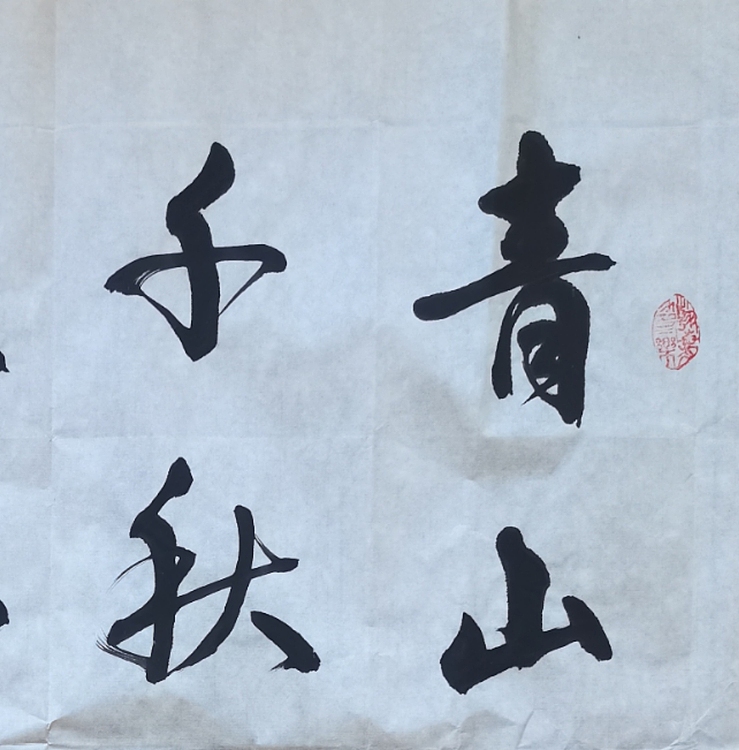 青山
千秋